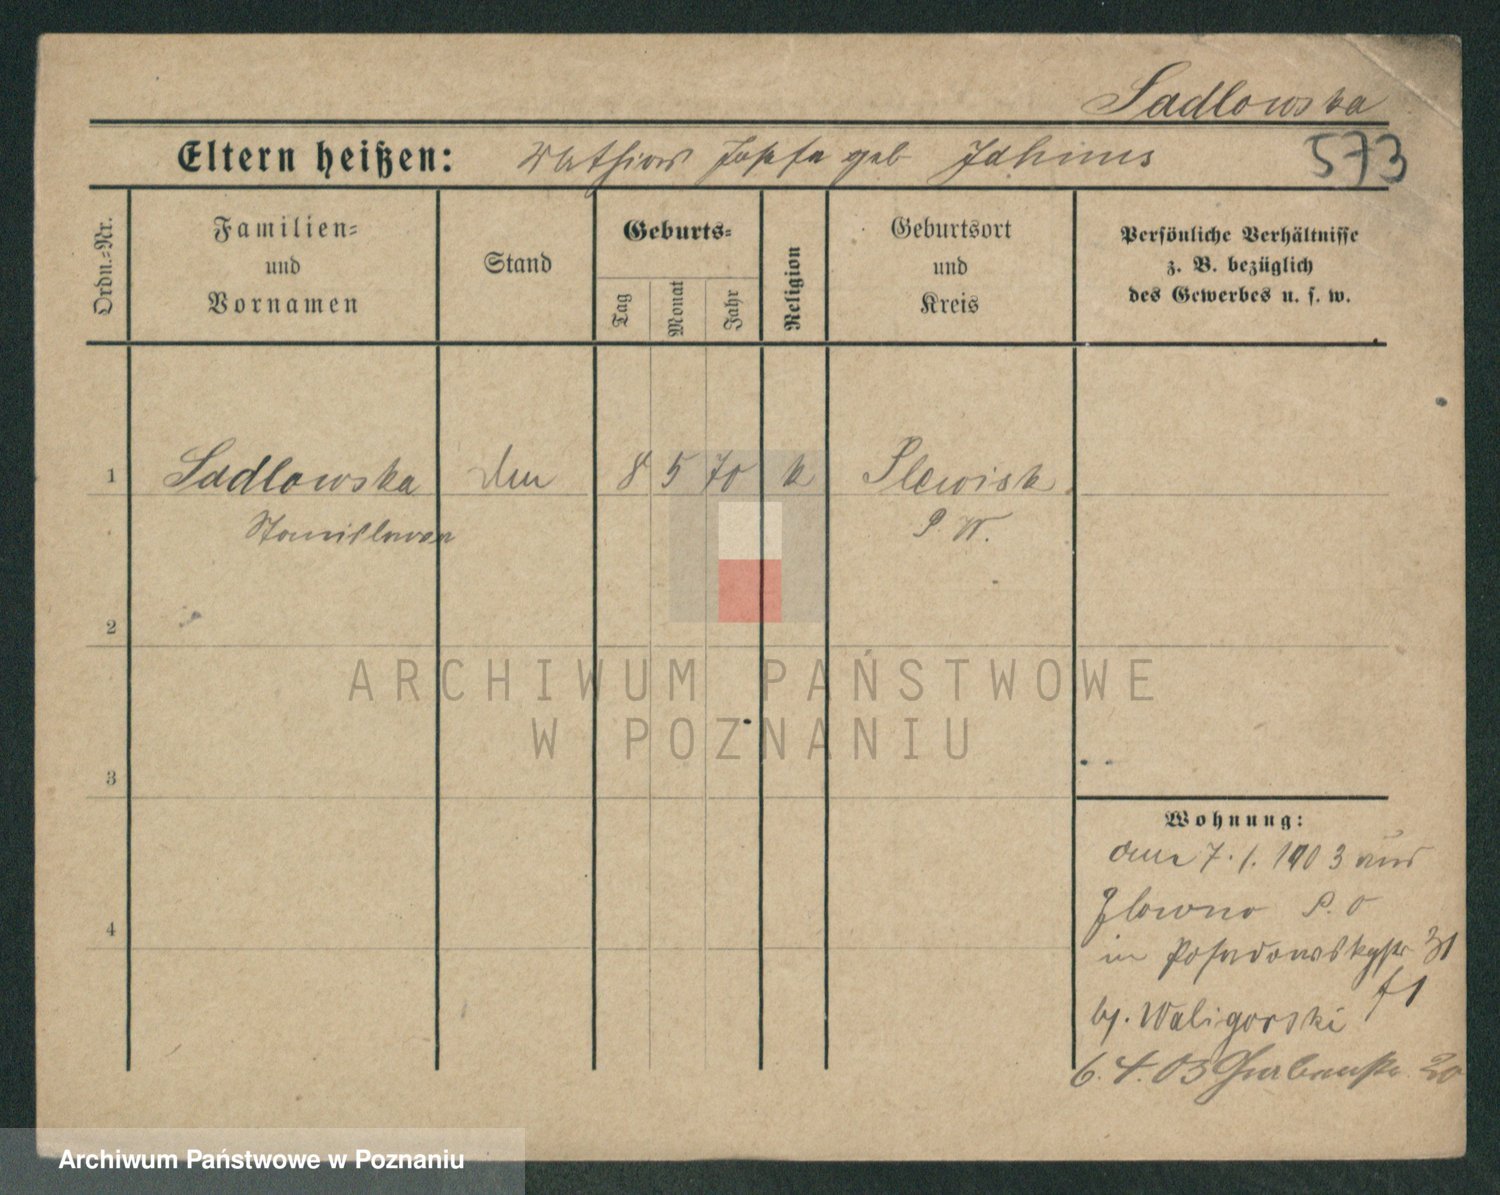 Sadlowska
573
Eltern heißen: Josefa geb
Ordn.-Nr.
Familien-
und
Vornamen
Stand
Geburts-
Tag
Monat
Jahr
Religion
Geburtsort
und
Kreis
Persönliche Verhältnisse
z. B. bezüglich
des Gewerbes u. s. w.
1 Sadlowska 8 5 70 k Plewisk
Stanislawa P. W.
2
3
4
Wohnung:
7. 1. 1903 aus
Glowno P. O
in Posadowskystr 31
b/. Waligorski
6. 4. 03 Grabenstr. 20
ARCHIWUM PAŃSTWOWE
W POZNANIU
Archiwum Państwowe w Poznaniu